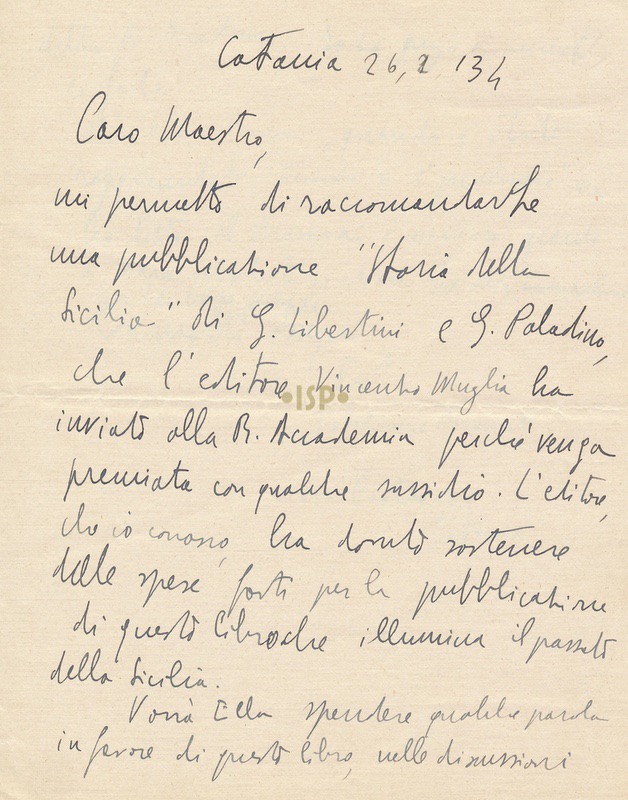 Catania 26, 2 134
Caro Maestro,
mi permetto di raccomandarLe
una pubblicazione "Storia della
Sicilia" di G. Libertini e G. Paladino,
che l'editore Vincenzo Muglia ha
•ISP•
inviato alla R. Accademia perché venga
premiata con qualche sussidio. L'editore,
che io conosco, ha dovuto sostenere
delle spese forti per la pubblicazione
di questo libro che illumina il passato
della Sicilia.
Vorrà Ella spendere qualche parola
in favore di questo libro, nelle discussioni